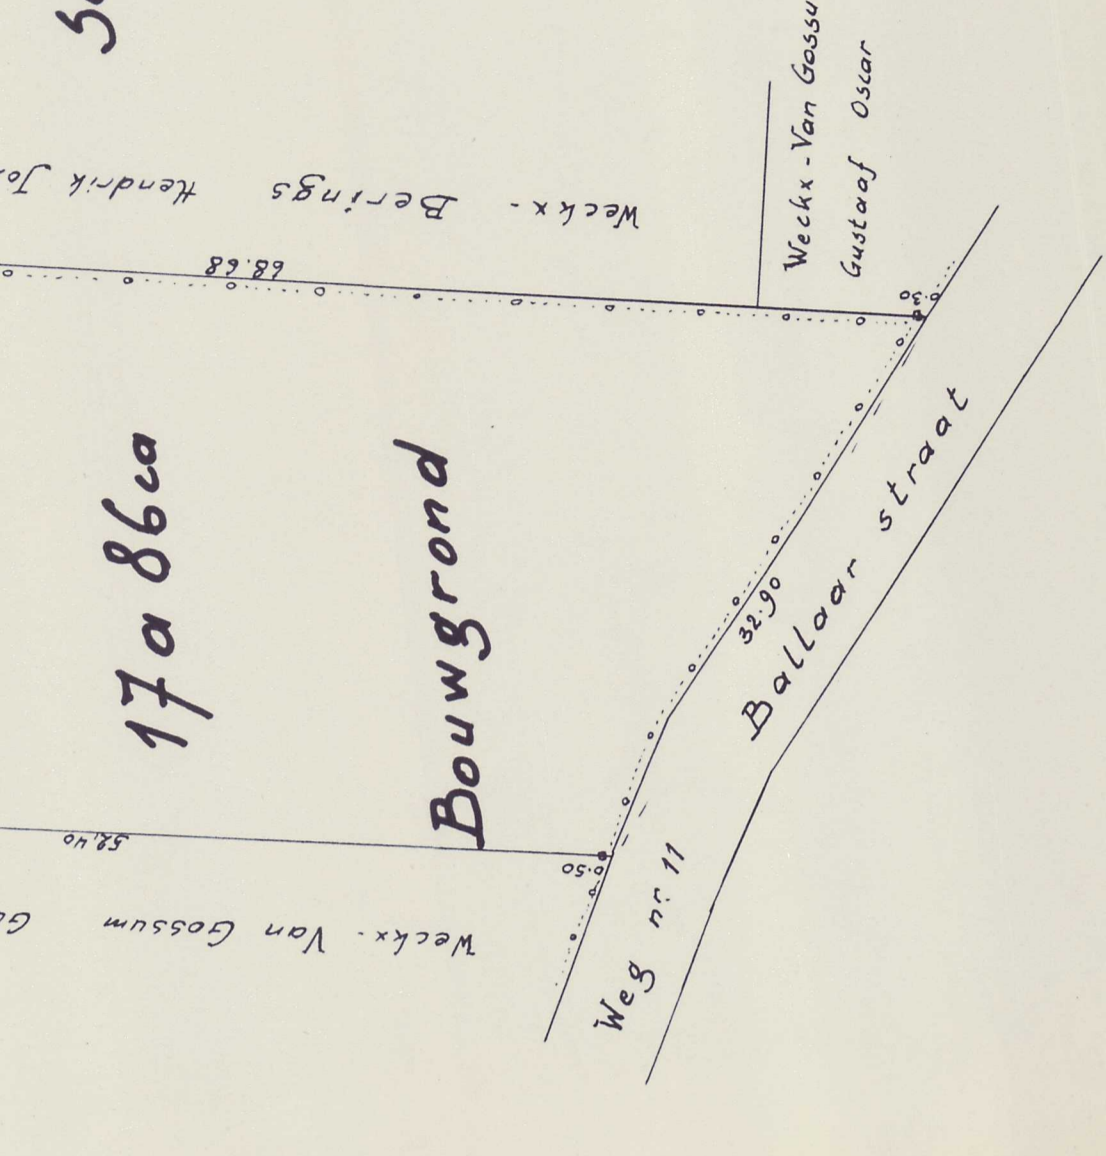 Weckx - Van Gossu
Gustaaf Oscar
Weckx - Berings Hendrik Jo
68.68
0.30
17a 86ca
Bouwgrond
32.90
Ballaar straat
Weg nr. 11
52.40
0.50
Weckx - Van Gossum G